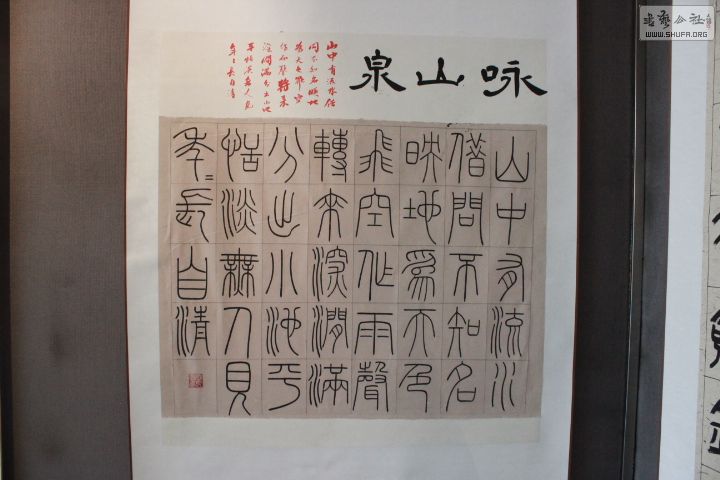 咏山泉
山中有流水借
問不知名映地
為天色飛空
作雨聲轉來
深澗滿分出小池
平恬淡無人見
年〻長自清
山中有流水
借問不知名
映地爲天色
飛空作雨聲
轉來深澗滿
分出小池平
恬淡無人見
年〻長自清
書藝公社
WWW.SHUFA.ORG